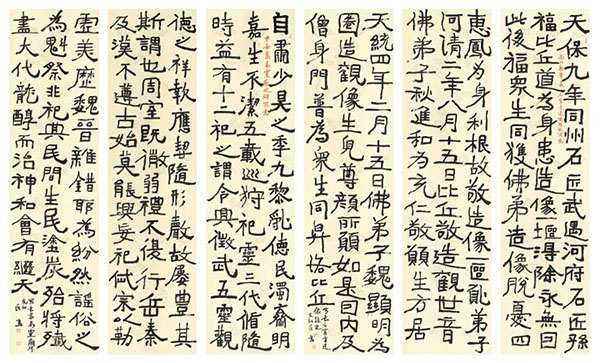 天保九年同州石匠武遇河府石匠孫
福比丘道為身患造像壇得除永無曰
此後福衆生同獲佛弟造像脫憂四
惠鳳為身利根故敬造像一區亂弟子
河清二年八月十五日比丘敬造觀世音
佛弟子秋進和為亡仁敬願生方居
天統四年二月十五日佛弟子魏顯明為
國造觀像生見尊顏所願如是曰內及
僧身門普為衆生同昇恪比丘
自肅少昊之季九黎亂德民瀆齋明
嘉生不潔五載巡狩祀靈三代脩隨
時益有十二祀之謂令興徵武五靈觀
德之祥執應契隨形藪故屢豊其
斯謂也周室既微弱禮不復行岳秦
及漢不遵古始莫能興妄祀宗人勒
虛美歷魏晉雜錯耶為紛然謠俗之
為魁祭非祀其民間生民塗炭殆將殲
盡大代龍醇而治神和會有繼天